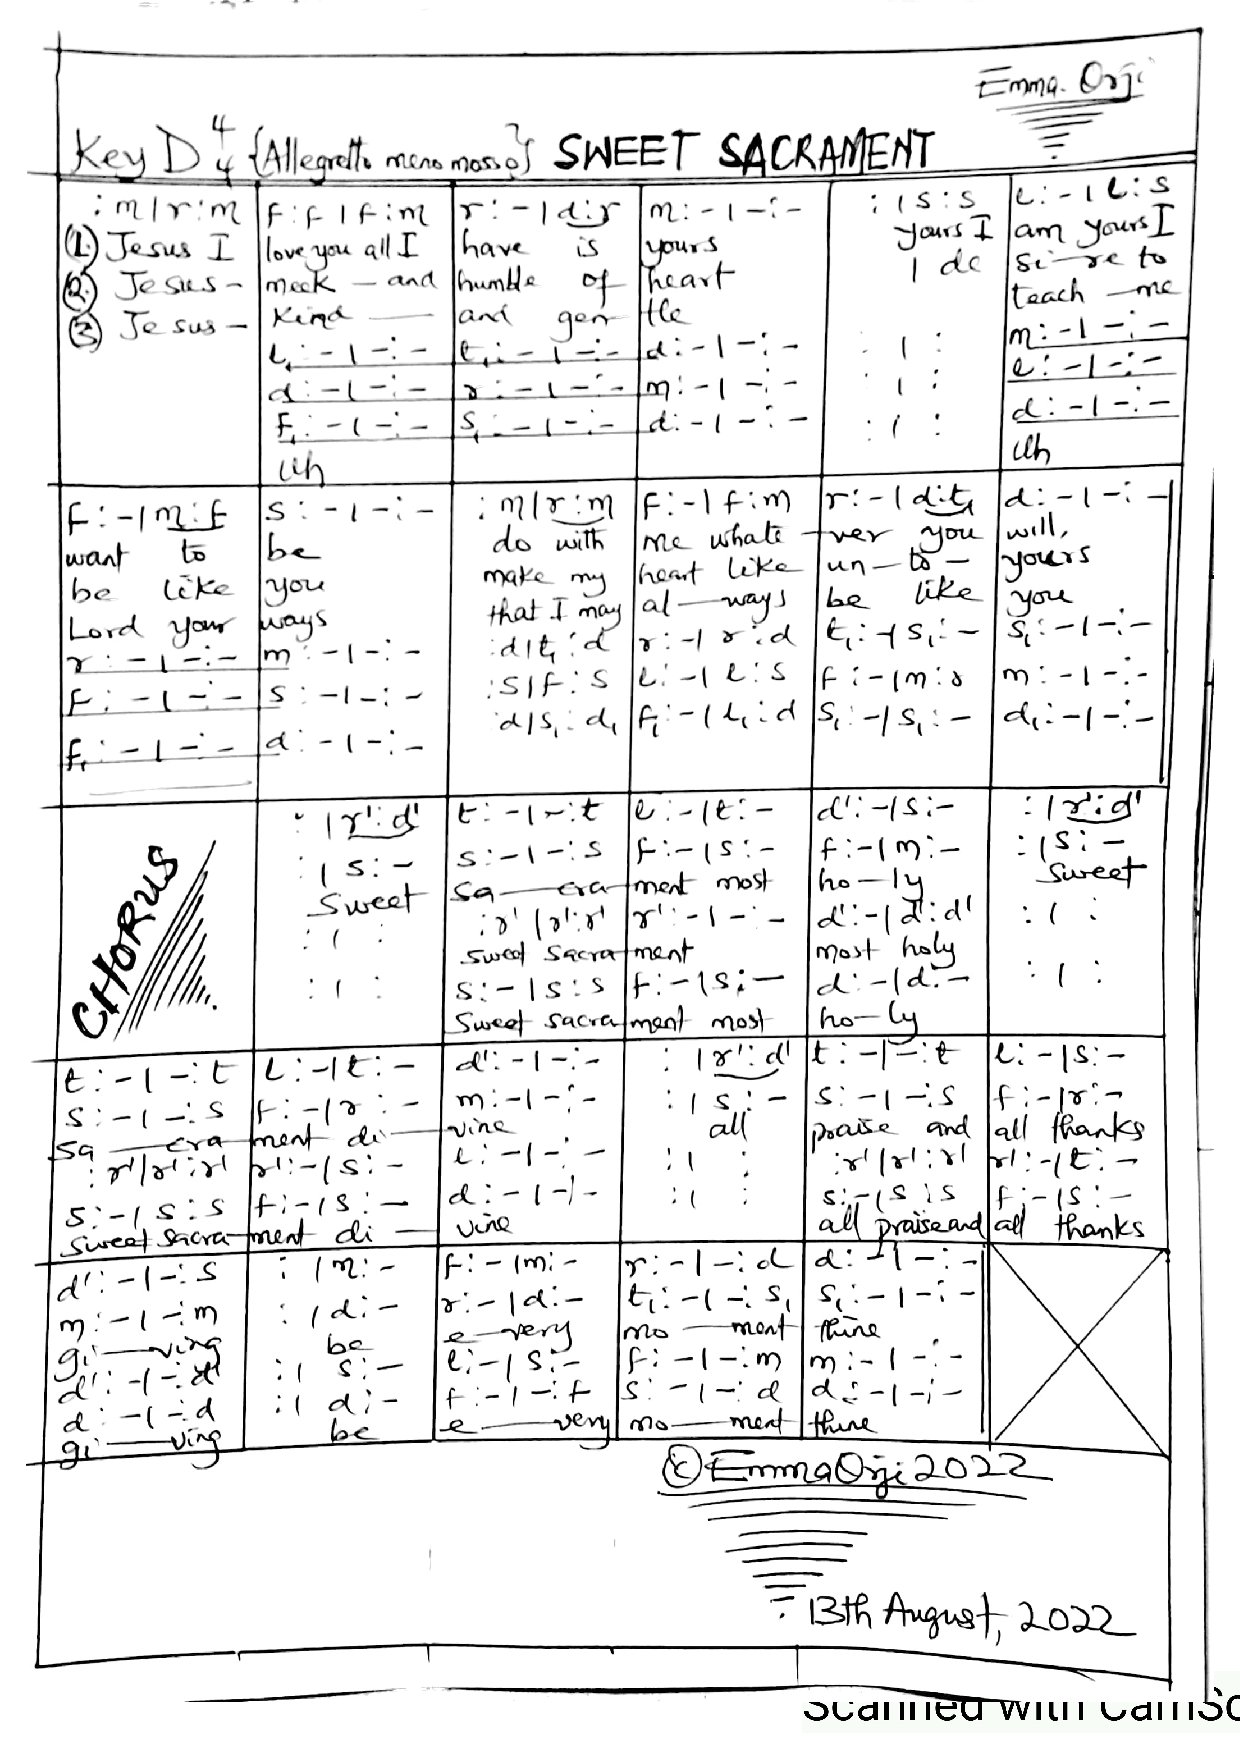 Emma. Orji
Key D 4/4 {Allegretto meno mosso} SWEET SACRAMENT
: m | r : m   f : f | f : m   r : - | d : r   m : - | - : -   : | s : s   l : - | l : s
(1.) Jesus I   love you all I   have is   yours   yours I   am yours I
(2.) Jesus -   meek - and   humble of   heart   I de   si - re to
(3) Jesus -   kind —   and gen   tle   teach - me
l₁ : - | - : -   t₁ : - | - : -   d : - | - : -   : | :   m : - | - : -
d : - | - : -   r : - | - : -   m : - | - : -   : | :   l : - | - : -
f₁ : - | - : -   s₁ : - | - : -   d : - | - : -   : | :   d : - | - : -
Uh   Uh
f : - | m : f   s : - | - : -   : m | r : m   f : - | f : m   r : - | d : t₁   d : - | - : -
want to   be   do with   me whate - ver you   will,
be like   you   make my   heart like   un - to -   yours
Lord your   ways   that I may   al — ways   be like   you
r : - | - : -   m : - | - : -   : d | t₁ : d   r : - | r : d   t₁ : - | s₁ : -   s₁ : - | - : -
f : - | - : -   s : - | - : -   : s | f : s   l : - | l : s   f : - | m : r   m : - | - : -
f₁ : - | - : -   d : - | - : -   d | s₁ : d₁   f₁ : - | l₁ : d   s₁ : - | s₁ : -   d₁ : - | - : -
CHORUS
: | r' : d'   t : - | - : t   l : - | t : -   d' : - | s : -   : | r' : d'
: | s : -   s : - | - : s   f : - | s : -   f : - | m : -   : | s : -
Sweet   Sa — cra - ment most   ho - ly   Sweet
: | :   : r' | r' : r'   r' : - | - : -   d' : - | d' : d'   : | :
sweet Sacra - ment   most holy
: | :   s : - | s : s   f : - | s : -   d : - | d : -   : | :
Sweet sacra - ment most   ho - ly
t : - | - : t   l : - | t : -   d' : - | - : -   : | r' : d'   t : - | - : t   l : - | s : -
s : - | - : s   f : - | r : -   m : - | - : -   : | s : -   s : - | - : s   f : - | r : -
Sa — cra - ment di — vine   all   praise and   all thanks
: r' | r' : r'   r' : - | s : -   l : - | - : -   : | :   : r' | r' : r'   r' : - | t : -
s : - | s : s   f : - | s : -   d : - | - | -   : | :   s : - | s : s   f : - | s : -
sweet sacra - ment di — vine   all praise and   all thanks
d' : - | - : s   : | m : -   f : - | m : -   r : - | - : d   d : - | - : -
m : - | - : m   : | d : -   r : - | d : -   t₁ : - | - : s₁   s₁ : - | - : -
gi — ving   be   e - very   mo — ment   thine
d' : - | - : d'   : | s : -   l : - | s : -   f : - | - : m   m : - | - : -
d : - | - : d   : | d : -   f : - | - : f   s : - | - : d   d : - | - : -
gi — ving   be   e — very   mo — ment   thine
© Emma Orji 2022
13th August, 2022
Scanned with CamSc